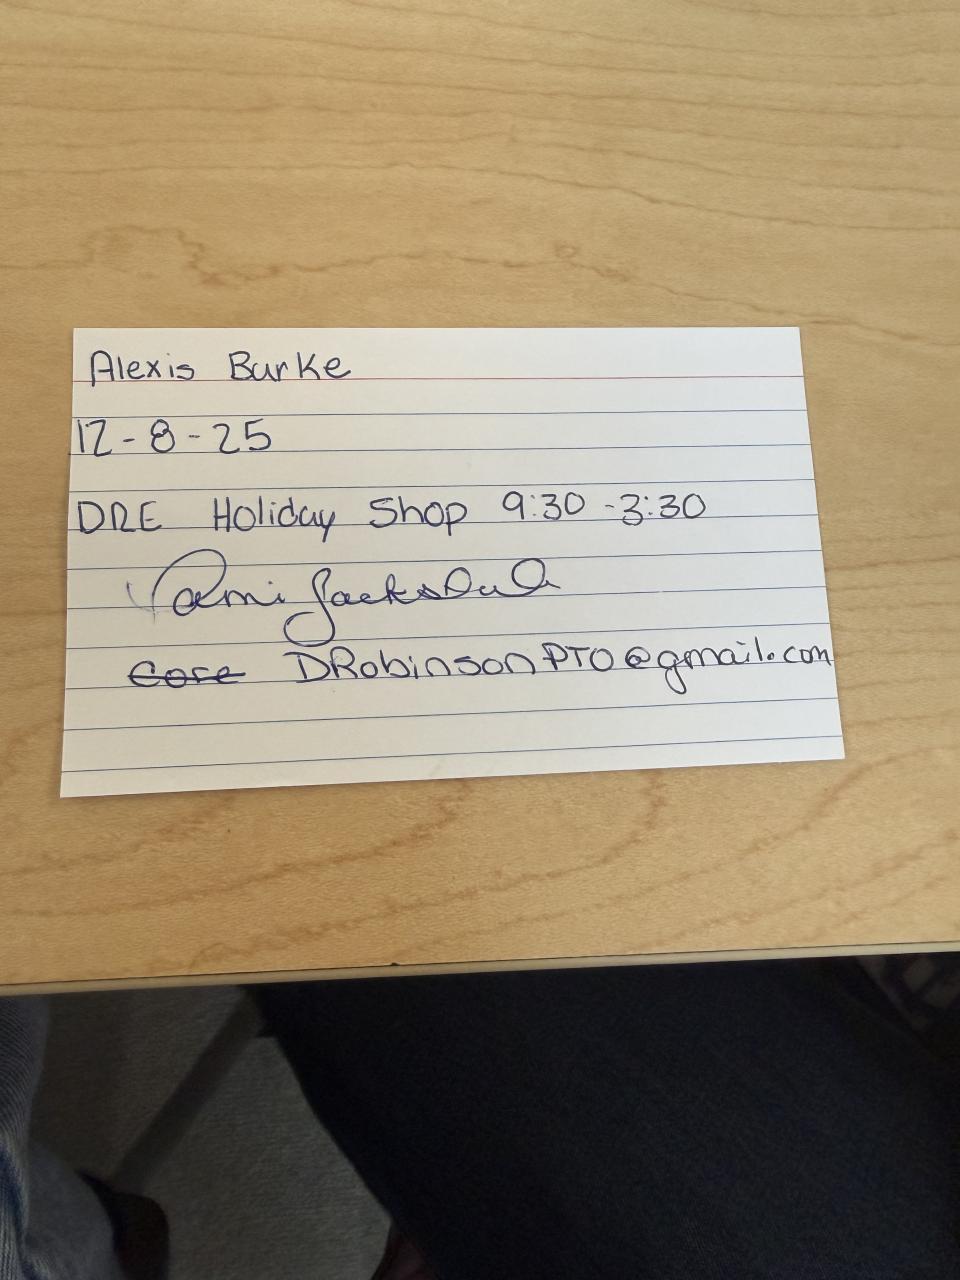 Alexis Burke
12-8-25
DRE Holiday Shop 9:30 -3:30
DRobinsonPTO@gmail.com